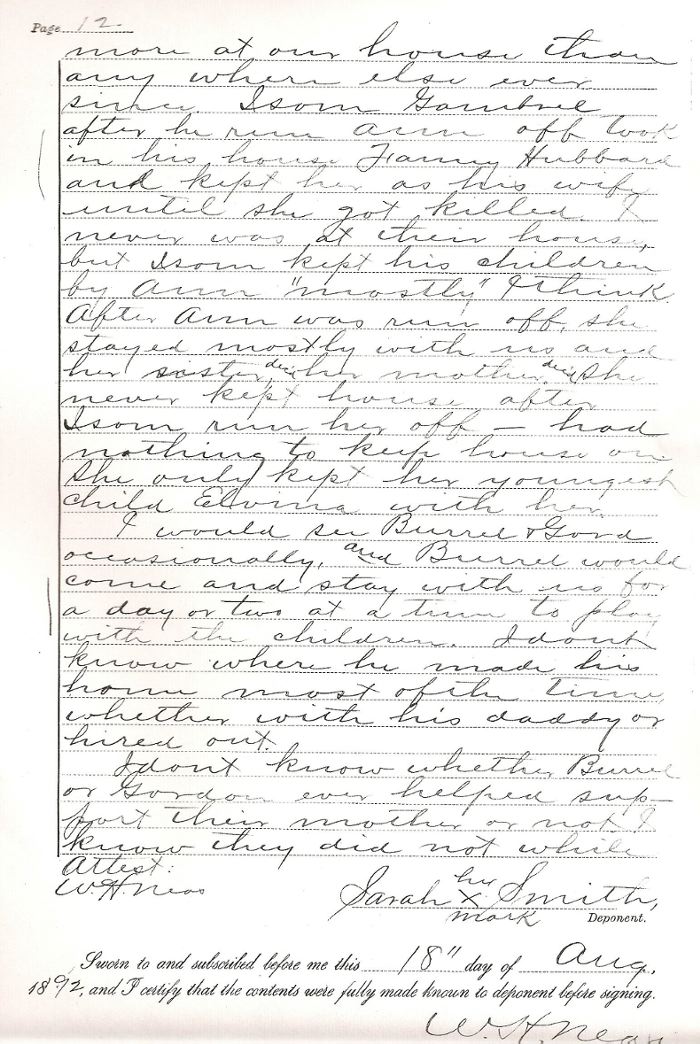 Page 12.
more at our house than
any where else ever
since Isom Gambrel
after he run Ann off took
in his house Fanny Hubbard
and kept her as his wife
until she got killed. I
never was at their house,
but Isom kept his children
by Ann "mostly" I think.
After Ann was run off, she
stayed mostly with us and
her sister, her mother. She
never kept house after
Isom run her off – had
nothing to keep house on
She only kept her youngest
child Elvina with her.
I would see Burrel & Gord
occasionally, and Burrel would
come and stay with us for
a day or two at a time to play
with the children. I dont
know where he made his
home most of the time,
whether with his daddy or
hired out.
I dont know whether Burrel
or Gordon ever helped sup-
port their mother or not I
know they did not while
Attest:
W.H. Neas
Sarah her X mark Smith,
Deponent.
Sworn to and subscribed before me this 18" day of Aug,
1892, and I certify that the contents were fully made known to deponent before signing.
W.H. Neas